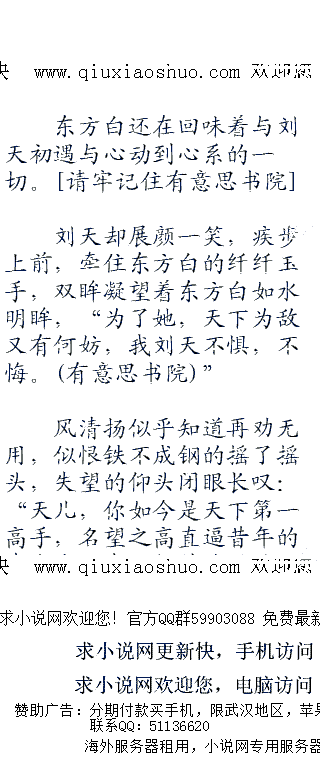 快 www.qiuxiaoshuo.com 欢迎您
东方白还在回味着与刘
天初遇与心动到心系的一
切。[请牢记住有意思书院]
刘天却展颜一笑，疾步
上前，牵住东方白的纤纤玉
手，双眸凝望着东方白如水
明眸，“为了她，天下为敌
又有何妨，我刘天不惧，不
悔。(有意思书院)”
风清扬似乎知道再劝无
用，似恨铁不成钢的摇了摇
头，失望的仰头闭眼长叹：
“天儿，你如今是天下第一
高手，名望之高直逼昔年的
快 www.qiuxiaoshuo.com 欢迎您
求小说网欢迎您! 官方QQ群59903088 免费最新
求小说网更新快，手机访问
求小说网欢迎您，电脑访问
赞助广告：分期付款买手机，限武汉地区，苹果
联系QQ：51136620
海外服务器租用，小说网专用服务器